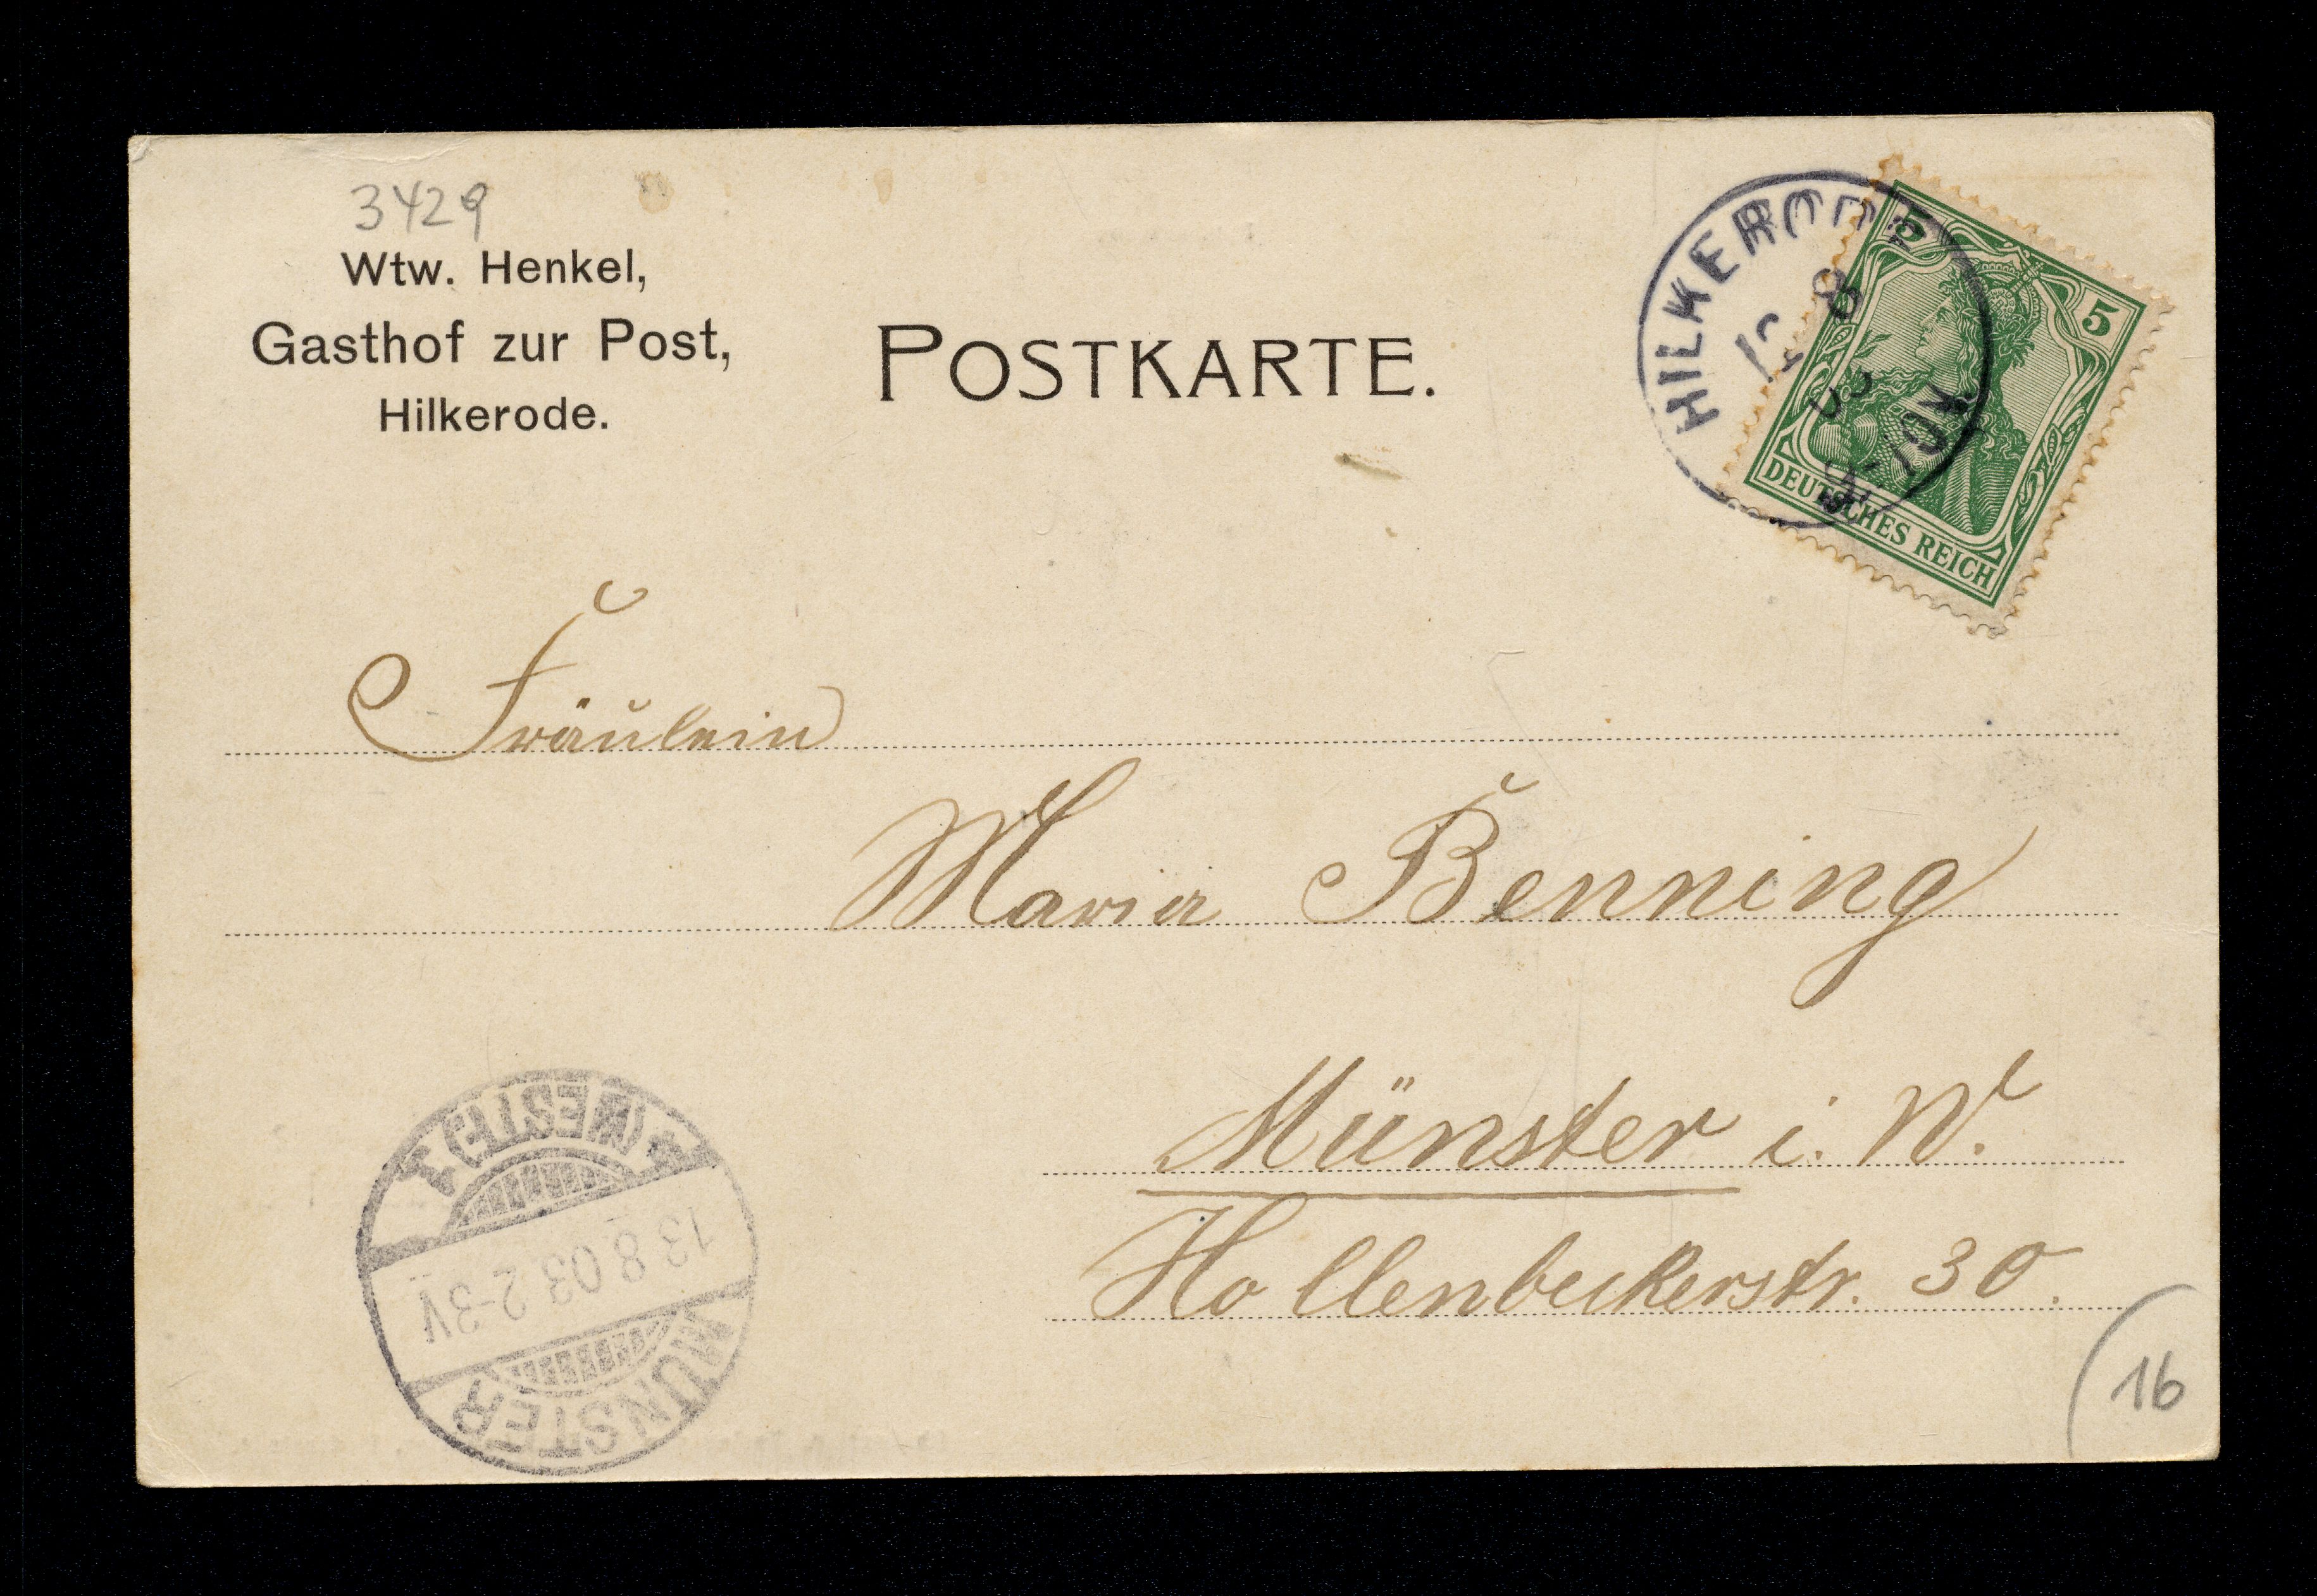 3429
Wtw. Henkel,
Gasthof zur Post,
Hilkerode.
POSTKARTE.
HILKERODE
12 8
03
5
5
DEUTSCHES REICH
Fräulein
Maria Benning
Münster i. W.
Hollenbeckerstr. 30.
16
* (WESTF.) 1
13 8 03 2-3V
MÜNSTER